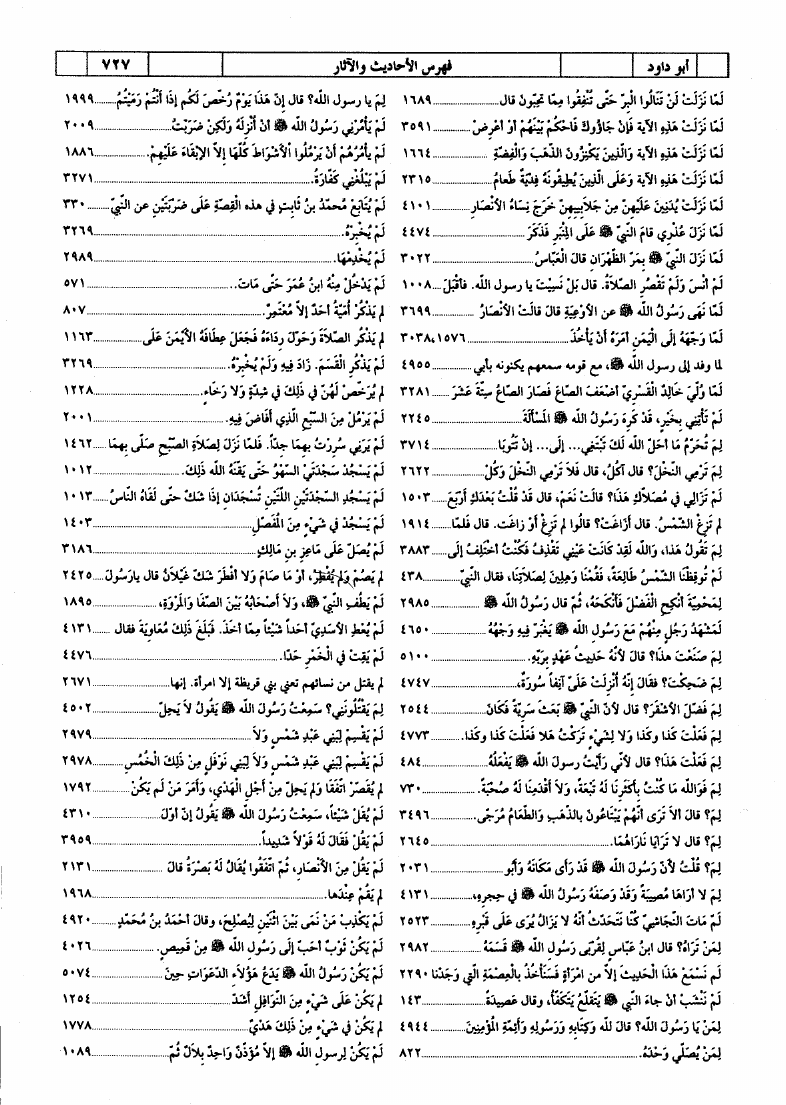 أبو داود فهرس الأحاديث والآثار ٧٢٧
لَمّا نَزَلَتْ لَنْ تَنَالُوا الْبِرَّ حَتَّى تُنْفِقُوا مِمّا تُحِبّونَ قال ١٦٨٩
لَمّا نَزَلَتْ هَذِهِ الآية فَإِنْ جَاؤُوكَ فَاحْكُمْ بَيْنَهُمْ أَوْ أَعْرِضْ ٣٥٩١
لَمّا نَزَلَتْ هَذِهِ الآية وَالَّذِينَ يَكْنِزُونَ الذَّهَبَ وَالْفِضَّةَ ١٦٦٤
لَمّا نَزَلَتْ هَذِهِ الآية وَعَلَى الَّذِينَ يُطِيقُونَهُ فِدْيَةٌ طَعَامُ ٢٣١٥
لَمّا نَزَلَتْ يُدْنِينَ عَلَيْهِنَّ مِنْ جَلَابِيبِهِنَّ خَرَجَ نِسَاءُ الأَنْصَارِ ٤١٠١
لَمّا نَزَلَ عُذْرِي قَامَ النّبيّ ﷺ عَلَى المِنْبَرِ فَذَكَرَ ٤٤٧٤
لَمّا نَزَلَ النّبيّ ﷺ بِمَرِّ الظّهْرَانِ قالَ الْعَبّاسُ ٣٠٢٢
لَمْ أَنْسَ وَلَمْ تَقْصُرِ الصّلَاةُ. قال: بَلْ نَسِيتَ يا رسول الله. فأقْبَلَ ١٠٠٨
لَمّا نَهَى رَسُولُ الله ﷺ عن الأَوْعِيَةِ قالَ قالَتْ الأَنْصَارُ ٣٦٩٩
لَمّا وَجّهَهُ إِلَى الْيَمَنِ أَمَرَهُ أَنْ يَأْخُذَ ١٥٧٦، ٣٠٣٨
لما وفد إلى رسول الله ﷺ، مع قومه سمعهم يكنونه بأبي ٤٩٥٥
لَمّا وُلّيَ خَالِدٌ الْقَسْرِيّ أَضْعَفَ الصّاعَ فَصَارَ الصّاعُ سِتّةَ عَشَرَ ٣٢٨١
لَمْ تَأْتِنِي بِخَيْرٍ، قَدْ كَرِهَ رَسُولُ الله ﷺ المَسْأَلَةَ ٢٢٤٥
لِمَ تُحَرّمُ مَا أَحَلّ الله لَكَ تَبْتَغِي... إلَى... إنْ تَتُوبَا ٣٧١٤
لِمَ تَرْمِي النّخْلَ؟ قال آكُلُ، قال فَلاَ تَرْمِي النّخْلَ وَكُلْ ٢٦٢٢
لَمْ تَزَالِي في مُصَلاّكِ هَذَا؟ قالَتْ نَعَمْ، قال قَدْ قُلْتُ بَعْدَكِ أَرْبَعَ ١٥٠٣
لَم تَزِغِ الشّمْسُ. قال أَزَاغَتْ؟ قالُوا لَم تَزِغْ أَوْ زاغَتْ. قال فَلَمّا ١٩١٤
لِمَ تَقُولُ هَذا، وَاللهِ لَقَدْ كَانَتْ عَيْنِي تَقْذِفُ فَكُنْتُ أَخْتَلِفُ إلَى ٣٨٨٣
لَمْ تُوقِظْنَا الشّمْسُ طَالِعَةً، فَقُمْنَا وَهِلِينَ لِصَلاَتِنَا، فقال النّبيّ ٤٣٨
لِمَحْمِيَةَ أَنْكِحِ الْفَضْلَ فَأَنْكَحَهُ، ثُمّ قال رَسُولُ الله ﷺ ٢٩٨٥
لَمَشْهَدُ رَجُلٍ مِنْهُمْ مَعَ رَسُولِ الله ﷺ يَغْبَرّ فِيهِ وَجْهُهُ ٤٦٥٠
لِمَ صَنَعْتَ هذَا؟ قالَ لأَنّهُ حَدِيثُ عَهْدٍ بِرَبّهِ. ٥١٠٠
لِمَ ضَحِكْتَ؟ فقالَ إِنّهُ أُنْزِلَتْ عَلَيّ آنِفاً سُورَةٌ، ٤٧٤٧
لِمَ فَضّلَ الأَشْقَرَ؟ قال لأَنّ النّبيّ ﷺ بَعَثَ سَرِيّةً فَكَانَ ٢٥٤٤
لِمَ فَعَلْتَ كَذا وكَذَا وَلا لِشَيْءٍ تَرَكْتُ هَلا فَعَلْتَ كَذا وكَذا. ٤٧٧٣
لِمَ فَعَلْتَ هَذَا؟ قال لأَنّي رَأَيْتُ رسولَ الله ﷺ يَفْعَلُهُ ٤٨٤
لِمَ فَوَالله مَا كُنْتَ بِأَكْثَرِنَا لَهُ تَبْعَةً، وَلاَ أَقْدَمِنَا لَهُ صُحْبَةً. ٧٣٠
لِمَ؟ قال ألاَ تَرَى أَنّهُمْ يَبْتَاعُونَ بالذّهَبِ وَالطّعَامُ مُرَجّى. ٣٤٩٦
لِمَ؟ قال لا تَرَايَا نَارَاهُمَا. ٢٦٤٥
لِمَ؟ قُلْتُ لأَنّ رَسُولَ الله ﷺ قَدْ رَأَى مَكَانَهُ وَأبُو ٢٠٣١
لِمَ لاَ أَرَاهَا مُصِيبَةً وَقَدْ وَضَعَهُ رَسُولُ الله ﷺ في حِجرِهِ، ٤١٣١
لَمّ مَاتَ النّجَاشِيّ كُنّا نَتَحَدّثُ أَنّهُ لا يَزَالُ يُرَى عَلَى قَبْرِهِ ٢٥٢٣
لِمَنْ تَرَاهُ؟ قال ابنُ عَبّاسٍ لِقُرْبَى رَسُولِ الله ﷺ قَسَمَهُ ٢٩٨٢
لَم نَسْمَعْ هَذَا الْحَدِيثَ إلاّ من امْرَأَةٍ فَسَنَأْخُذُ بالْعِصْمَةِ الّتِي وَجَدْنَا ٢٢٩٠
لَمْ نَنْشَبْ أَنْ جَاءَ النّبيّ ﷺ يَتَقَلّعُ يَتَكَفّأُ، وقال عَصِيدَةٌ ١٤٣
لِمَنْ يَا رَسُولَ الله؟ قالَ لله وَكِتَابِهِ وَرَسُولِهِ وَأَئِمّةِ المُؤْمِنِينَ ٤٩٤٤
لِمَنْ يُصَلّي وَحْدَهُ. ٨٢٢
لِمَ يا رسول الله؟ قال إنّ هَذَا يَوْمٌ رُخّصَ لَكُم إذَا أَنْتُمْ رَمَيْتُمُ ١٩٩٩
لَمْ يَأْمُرْنِي رَسُولُ الله ﷺ أَنْ أُنْزِلَهُ وَلَكِنْ ضَرَبْتُ ٢٠٠٩
لَمْ يَأْمُرْهُمْ أَنْ يَرْمُلُوا الأَشْوَاطَ كُلّهَا إلاّ الإبْقَاءَ عَلَيْهِمْ. ١٨٨٦
لَمْ يَبْلُغْنِي كَفّارَةٌ. ٣٢٧١
لَمْ يُتَابَعْ مُحمّدُ بنُ ثَابِتٍ في هذه القِصّةِ عَلَى ضَرْبَتَيْنِ عن النّبيّ ٣٣٠
لَمْ يُخْبِرْهُ. ٣٢٦٩
لَمْ يُخْدِمْهَا. ٢٩٨٩
لَمْ يَدْخُلْ مِنْهُ ابنُ عُمَرَ حَتّى مَاتَ. ٥٧١
لَم يَذْكُرْ أُمَيّةُ أَحَدٌ إلاّ مُعْتَمِرٌ. ٨٠٧
لَم يَذْكُرِ الصّلاَةَ وَحَوّلَ رِدَاءَهُ فَجَعَلَ عِطَافَهُ الأَيْمَنَ عَلَى ١١٦٣
لَمْ يَذْكُرِ الْقَسَمَ. زَادَ فِيهِ وَلَمْ يُخْبِرْهُ. ٣٢٦٩
لَم يُرَخّصْ لَهُنّ في ذَلِكَ في شِدّةٍ وَلا رَخَاءٍ. ١٢٢٨
لَمْ يَرْمُلْ مِنَ السّبْعِ الّذِي أَفَاضَ فِيهِ. ٢٠٠١
لَمْ يَرَنِي سُرِرْتُ بِهِمَا جِدّاً. فَلمّا نَزَلَ لِصَلاَةِ الصّبْحِ صَلّى بِهِمَا ١٤٦٢
لَمْ يَسْجُدْ سَجْدَتَيِ السّهْوِ حَتّى يَقّنَهُ الله ذَلِكَ. ١٠١٢
لَمْ يَسْجُدِ السّجْدَتَيْنِ اللّتَيْنِ تُسْجَدَانِ إذَا شَكّ حتّى لَقَاهُ النّاسُ ١٠١٣
لَمْ يَسْجُدْ في شَيْءٍ مِنَ المُفَصّلِ ١٤٠٣
لَمْ يُصَلّ عَلَى مَاعِزِ بنِ مَالِكٍ ٣١٨٦
لَمْ يَصُمْ وَلَم يُفْطِرْ، أَوْ مَا صَامَ وَلا أَفْطَرَ شَكّ غَيْلاَنُ قال يارَسُولَ ٢٤٢٥
لَمْ يَطُفِ النّبيّ ﷺ، وَلاَ أَصْحَابُهُ بَيْنَ الصّفَا وَالمَرْوَةِ، ١٨٩٥
لَمْ يُعْطِ الأَسَدِيّ أَحَداً شَيْئاً مِمّا أَخَذَ. فَبَلَغَ ذَلِكَ مُعَاوِيَةَ فقال ٤١٣١
لَمْ يَقِتْ في الْخَمْرِ حَدّا. ٤٤٧٦
لم يقتل من نسائهم تعني بني قريظة إلا امرأة. إنها ٢٦٧١
لِمَ يَقْتُلُونَنِي؟ سَمِعْتُ رَسُولَ الله ﷺ يَقُولُ لاَ يَحِلّ ٤٥٠٢
لَمْ يَقْسِمْ لِبَنِي عَبْدِ شَمْسٍ وَلاَ ٢٩٧٩
لَمْ يَقْسِمْ لِبَنِي عَبْدِ شَمْسٍ وَلاَ لِبَنِي نَوْفَلٍ مِنْ ذَلِكَ الْخُمُسِ ٢٩٧٨
لَم يُقَصّرْ اتّفَقَا وَلم يَحِلّ مِنْ أَجْلِ الْهَدْيِ، وَأَمَرَ مَنْ لَم يَكُنْ ١٧٩٢
لَمْ يُقَلْ شَيْئاً، سَمِعْتُ رَسُولَ الله ﷺ يَقُولُ إنّ أَوّلَ ٤٣١٠
لَمْ يَقُلْ فَقَالَ لَهُ قَوْلاً شَدِيداً. ٣٩٥٩
لَمْ يَقُلْ مِنَ الأَنْصَارِ، ثُمّ اتّفَقُوا يُقَالُ لَهُ بَصْرَةُ قالَ ٢١٣١
لَم يَقُمْ عِنْدَها. ١٩٦٨
لَمْ يَكْذِبْ مَنْ نَمَى بَيْنَ اثْنَيْنِ لِيُصْلِحَ، وقال أَحْمَدُ بنُ مُحَمّدٍ ٤٩٢٠
لَمْ يَكُنْ ثَوْبٌ أَحَبّ إلَى رَسُولِ الله ﷺ مِنْ قَمِيصٍ. ٤٠٢٦
لَمْ يَكُنْ رَسُولُ الله ﷺ يَدَعُ هَؤُلاَءِ الدّعَوَاتِ حِينَ ٥٠٧٤
لَم يَكُنْ عَلَى شَيْءٍ مِنَ النّوَافِلِ أَشَدّ ١٢٥٤
لَم يَكُنْ في شَيْءٍ مِنْ ذَلِكَ هَدْيٌ ١٧٧٨
لَمْ يَكُنْ لِرسولِ الله ﷺ إلاّ مُؤَذّنٌ وَاحِدٌ بِلاَلٌ ثُمّ ١٠٨٩